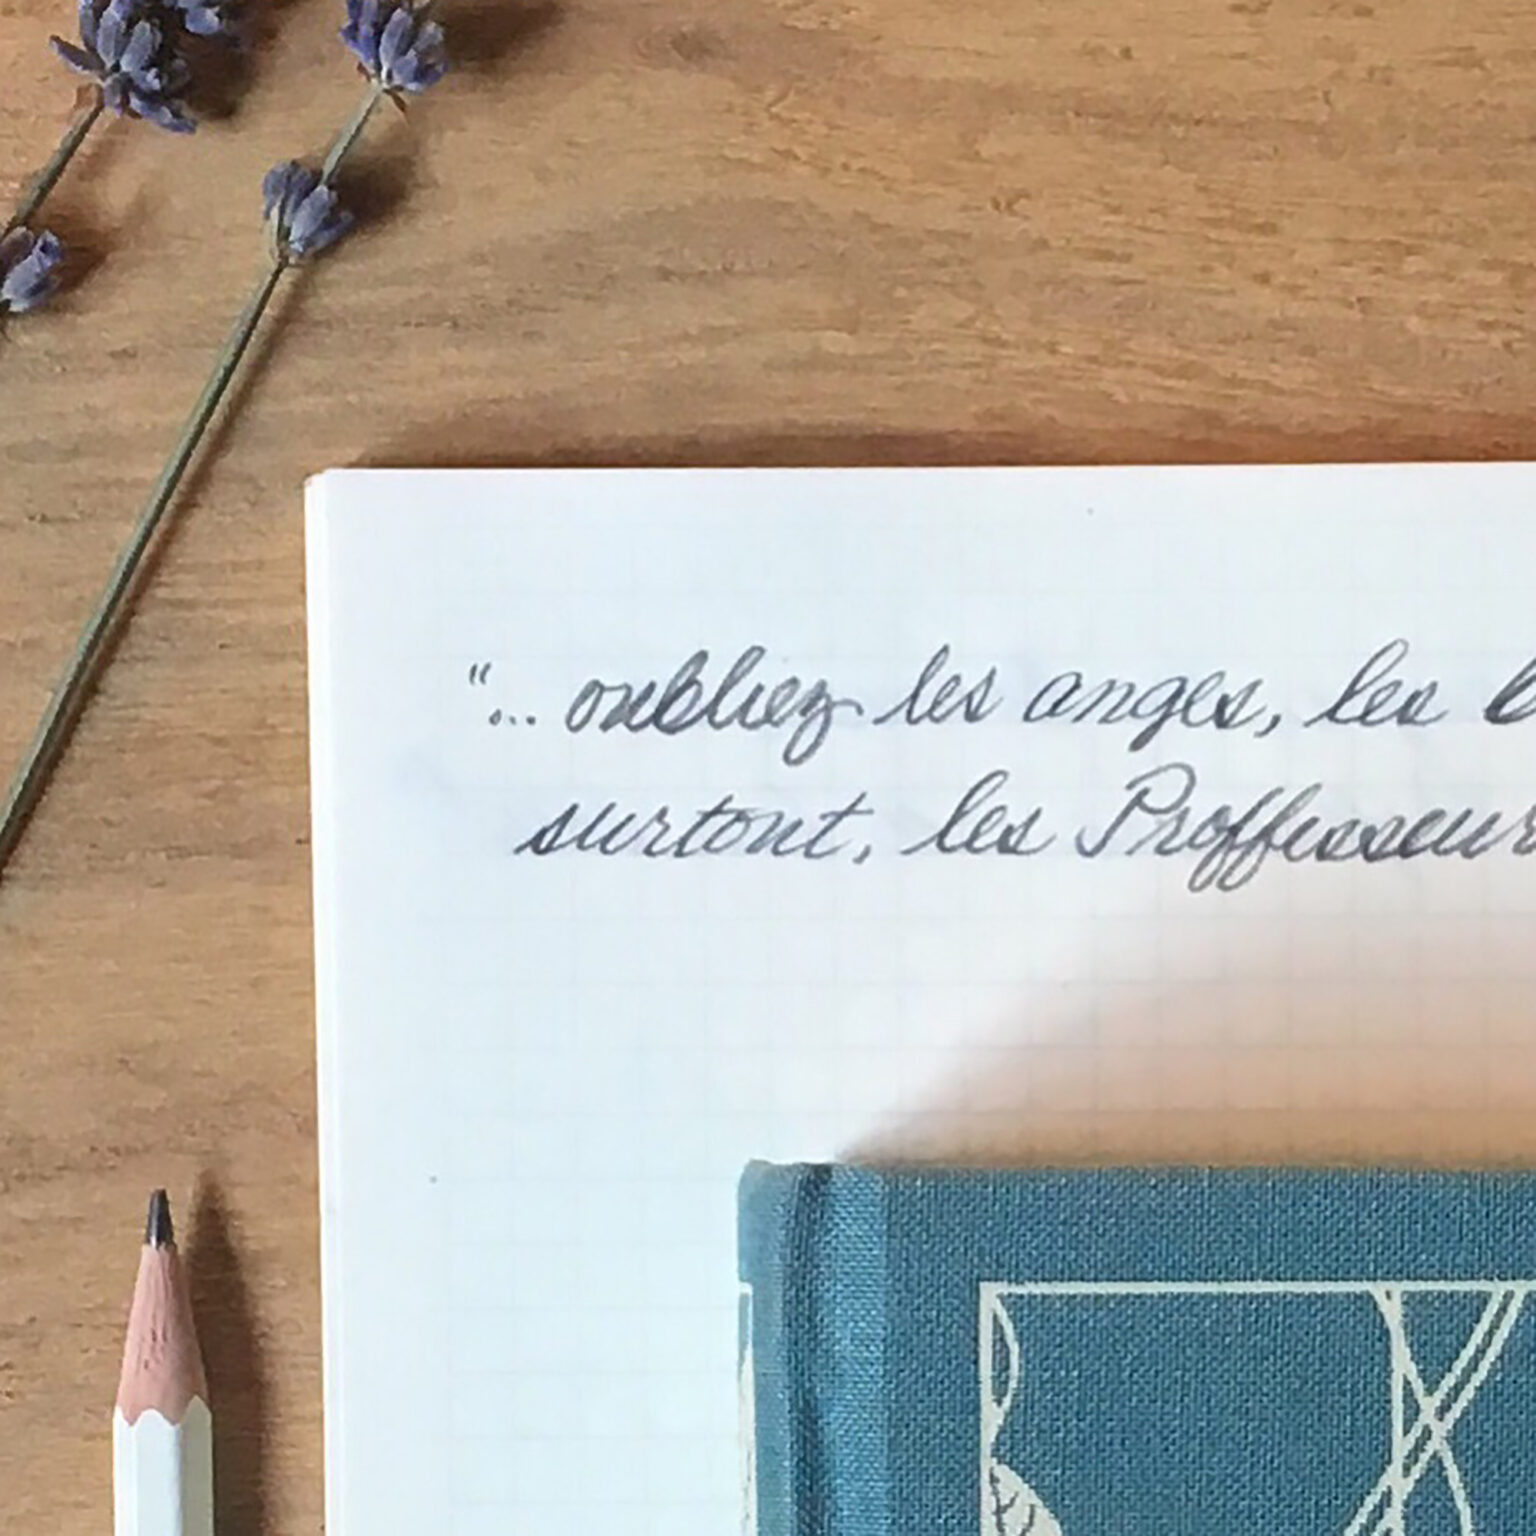 "... oubliez les anges, les
surtout, les Proffesseur